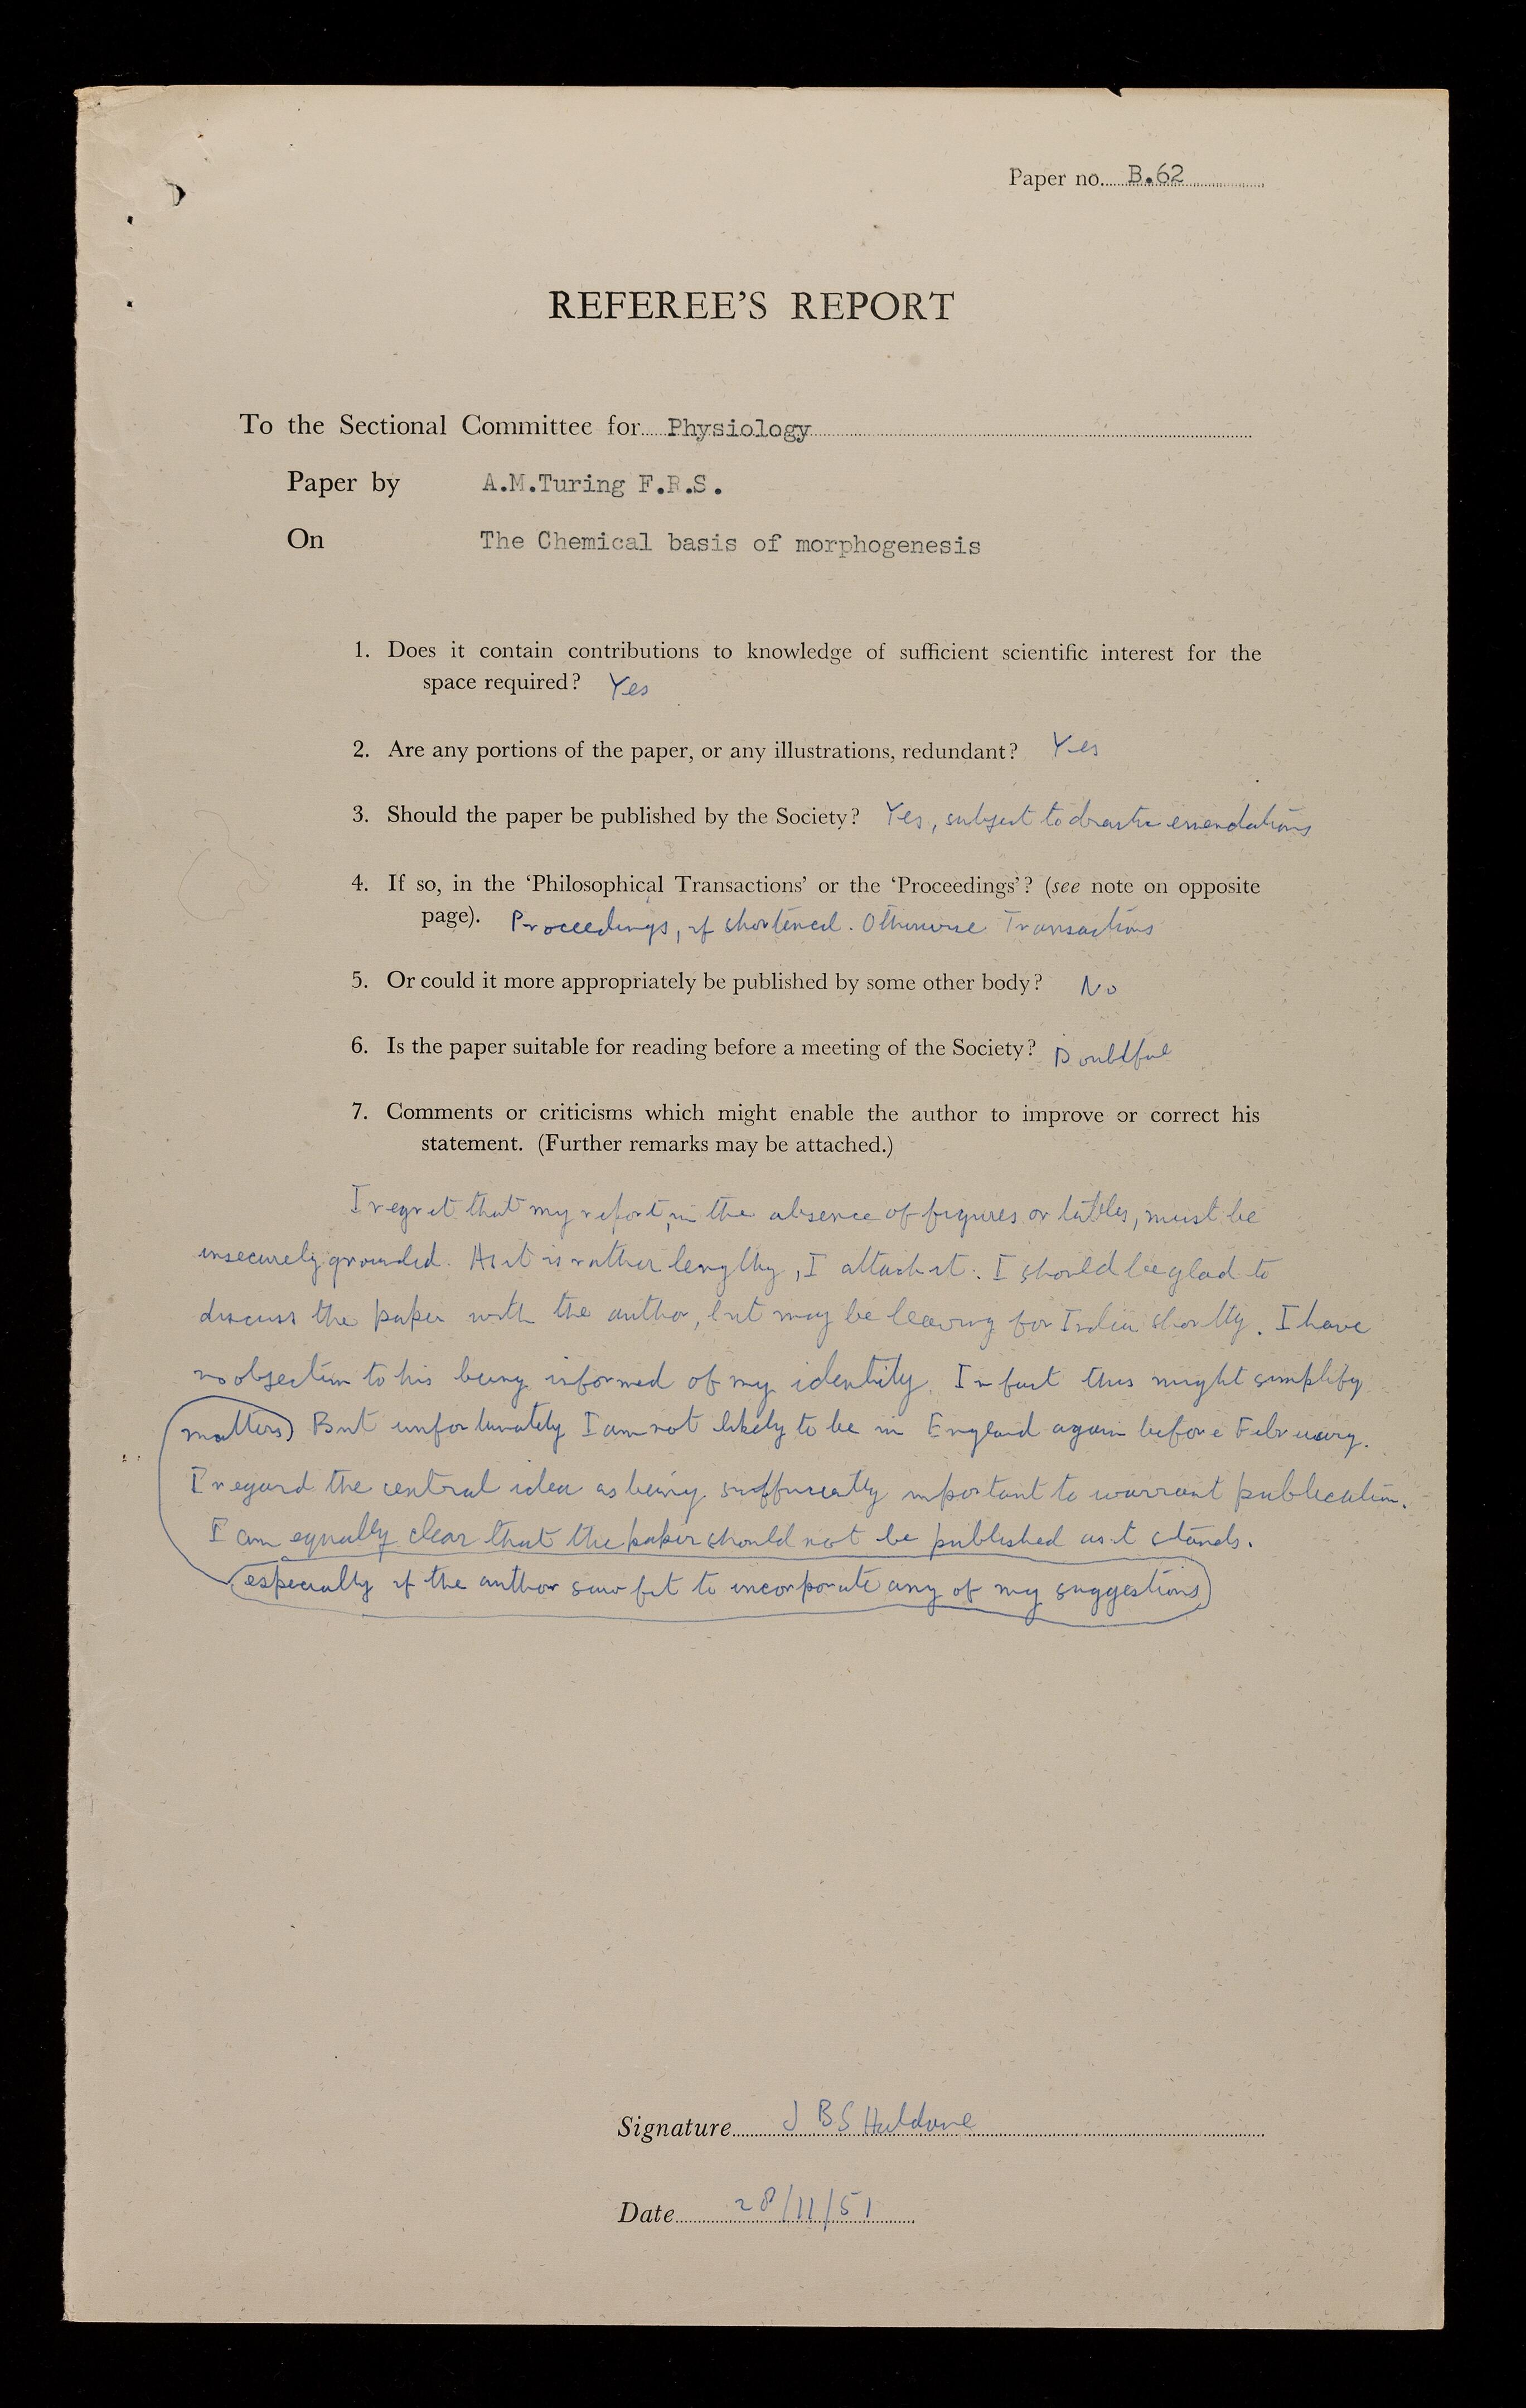 Paper no. B.62
REFEREE'S REPORT
To the Sectional Committee for Physiology
Paper by A.M.Turing F.R.S.
On The Chemical basis of morphogenesis
1. Does it contain contributions to knowledge of sufficient scientific interest for the
space required? Yes
2. Are any portions of the paper, or any illustrations, redundant? Yes
3. Should the paper be published by the Society? Yes, subject to drastic emendations
4. If so, in the ‘Philosophical Transactions’ or the ‘Proceedings’? (see note on opposite
page). Proceedings, if shortened. Otherwise Transactions
5. Or could it more appropriately be published by some other body? No
6. Is the paper suitable for reading before a meeting of the Society? Doubtful
7. Comments or criticisms which might enable the author to improve or correct his
statement. (Further remarks may be attached.)
I regret that my report, in the absence of figures or tables, must be
insecurely grounded. As it is rather lengthy, I attach it. I should be glad to
discuss the paper with the author, but may be leaving for India shortly. I have
no objection to his being informed of my identity. In fact this might simplify
matters) But unfortunately I am not likely to be in England again before February.
I regard the central idea as being sufficiently important to warrant publication.
I am equally clear that the paper should not be published as it stands.
(especially if the author saw fit to incorporate any of my suggestions)
Signature J B S Haldane
Date 28/11/51